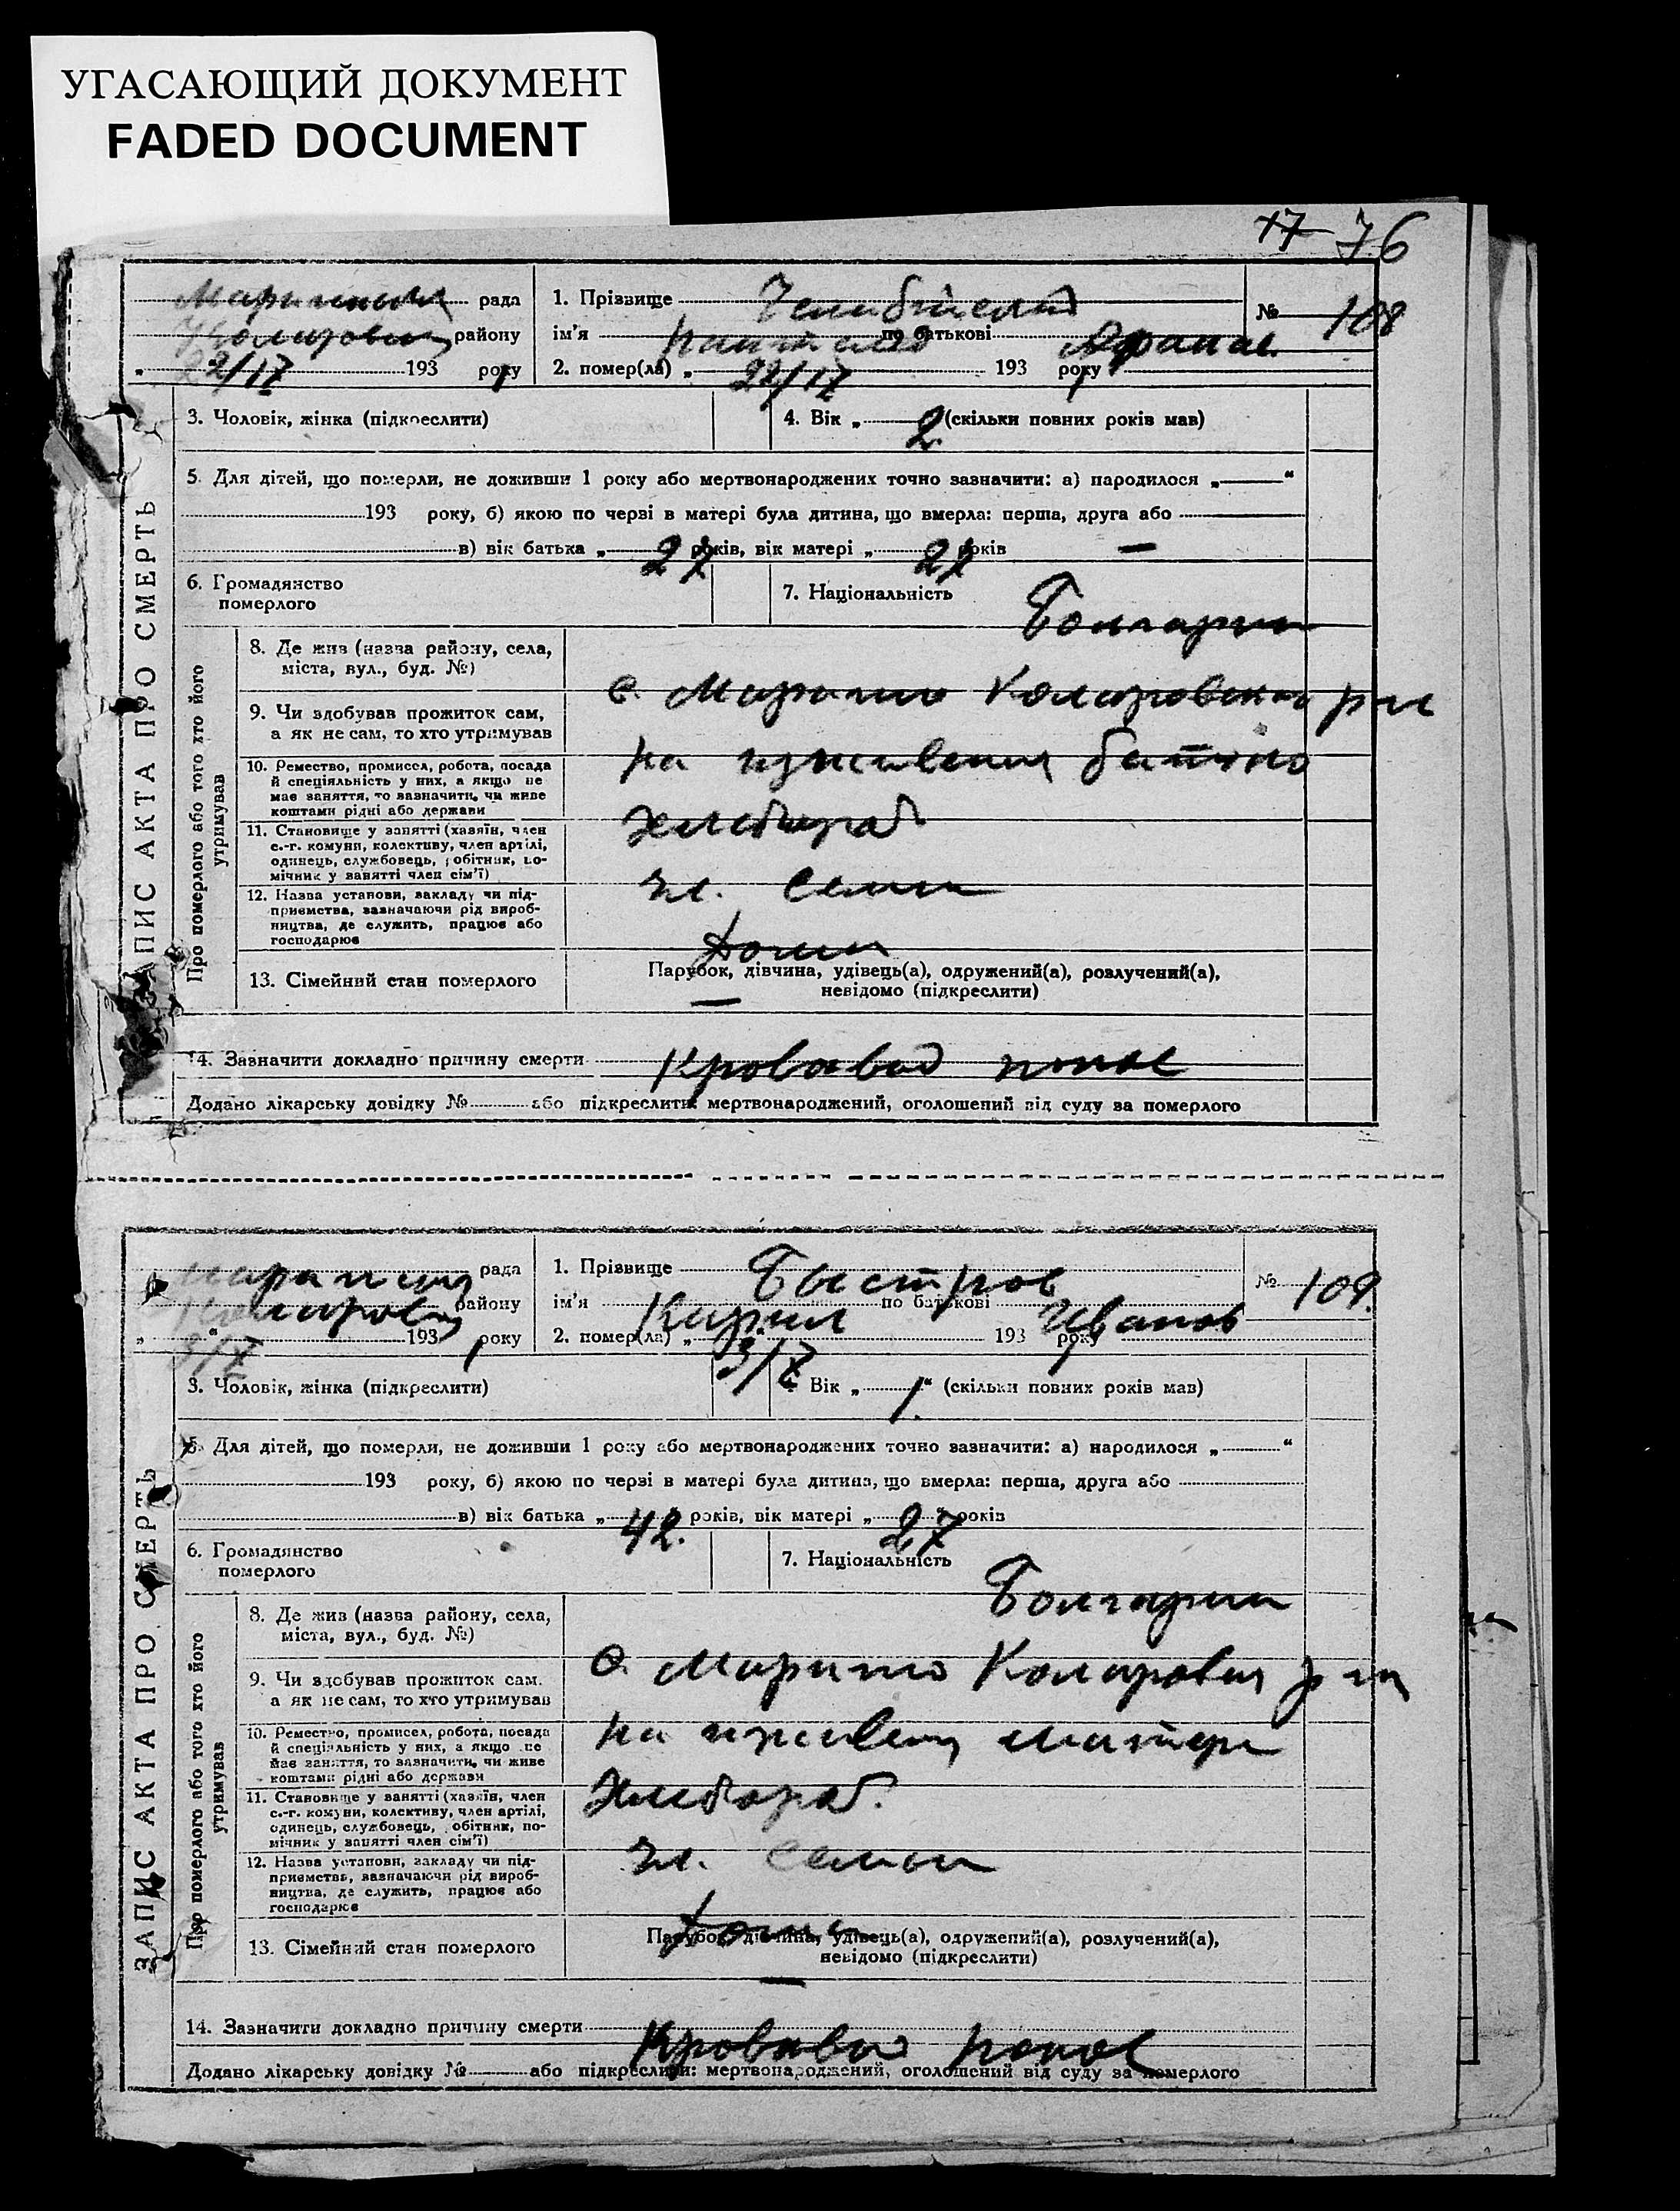 УГАСАЮЩИЙ ДОКУМЕНТ
FADED DOCUMENT
17 76
рада
району
22/IX 193 року
1. Прізвище
№ 108
ім'я по батькові Афанас.
2. помер(ла) „ 22/IX 193 року
ЗАПИС АКТА ПРО СМЕРТЬ
3. Чоловік, жінка (підкреслити)
4. Вік „ 2 (скільки повних років мав)
5. Для дітей, що померли, не доживши 1 року або мертвонароджених точно зазначити: а) народилося „ “
193 року, б) якою по черзі в матері була дитина, що вмерла: перша, друга або
в) вік батька „ 27 років, вік матері „ 27 років —
6. Громадянство
померлого
7. Національність
Болгарин
Про померлого або того хто його
утримував
8. Де жив (назва району, села,
міста, вул., буд. №)
с. Марино Коларовского р-на
9. Чи здобував прожиток сам,
а як не сам, то хто утримував
на иждивении батько
10. Ремество, промисел, робота, посада
й спеціяльність у них, а якщо не
має заняття, то зазначити, чи живе
коштами рідні або держави
хлебороб
11. Становище у занятті (хазяїн, член
с.-г. комуни, колективу, член артілі,
одинець, службовець, робітник, по-
мічник у занятті член сім'ї)
чл. семьи
12. Назва установи, закладу чи під-
приємства, зазначаючи рід вироб-
ництва, де служить, працює або
господарює
дома
13. Сімейний стан померлого
Парубок, дівчина, удівець(а), одружений(а), розлучений(а),
невідомо (підкреслити)
—
14. Зазначити докладно причину смерти Кровавой понос
Додано лікарську довідку № або підкреслити: мертвонароджений, оголошений від суду за померлого
рада
району
„ “ 193 року
3/X
1. Прізвище Быстров
№ 109.
ім'я Кирил по батькові Иванов
2. помер(ла) „ 193 року
3/X
ЗАПИС АКТА ПРО СМЕРТЬ
3. Чоловік, жінка (підкреслити)
Вік „ 1 “ (скільки повних років мав)
5. Для дітей, що померли, не доживши 1 року або мертвонароджених точно зазначити: а) народилося „ “
193 року, б) якою по черзі в матері була дитина, що вмерла: перша, друга або
в) вік батька „ 42. років, вік матері „ 27 років
6. Громадянство
померлого
7. Національність
Болгарин
Про померлого або того хто його
утримував
8. Де жив (назва району, села,
міста, вул., буд. №)
с. Марино Коларовск р-на
9. Чи здобував прожиток сам.
а як не сам, то хто утримував
на иждивен матери
10. Ремество, промисел, робота, посада
й спеціяльність у них, а якщо не
має заняття, то зазначити, чи живе
коштами рідні або держави
Хлебороб.
11. Становище у занятті (хазяїн, член
с.-г. комуни, колективу, член артілі,
одинець, службовець, обітник, по-
мічник у занятті член сім'ї)
чл. семьи
12. Назва установи, закладу чи під-
приємства, зазначаючи рід вироб-
ництва, де служить, працює або
господарює
дома
13. Сімейний стан померлого
Парубок, дівчина, удівець(а), одружений(а), розлучений(а),
невідомо (підкреслити)
—
14. Зазначити докладно причину смерти
Кровавый понос
Додано лікарську довідку № або підкреслити: мертвонароджений, оголошений від суду за померлого